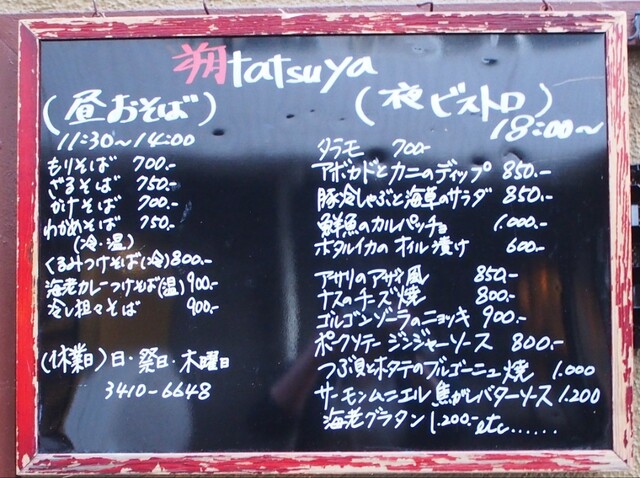 朔tatsuya
(昼おそば)
11:30～14:00
もりそば 700.-
ざるそば 750.-
かけそば 700.-
わかめそば 750.-
(冷・温)
くるみつけそば(冷) 800.-
海老カレーつけそば(温) 900.-
冷し担々そば 900.-
(休業日)日・祭日・木曜日
3410-6648
(夜ビストロ)
18:00～
タラモ 700.-
アボカドとカニのディップ 850.-
豚冷しゃぶと海草のサラダ 850.-
鮮魚のカルパッチョ 1.000.-
ホタルイカのオイル漬け 600.-
アサリのアサリ風 850.-
ナスのチーズ焼 800.-
ゴルゴンゾーラのニョッキ 900.-
ポークソテージンジャーソース 800.-
つぶ貝とホタテのブルゴーニュ焼 1.000
サーモンムニエル焦がしバターソース 1.200
海老グラタン 1.200.-
etc......